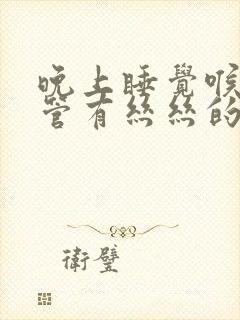 晚上睡覺喉
管有絲絲的
衛璧